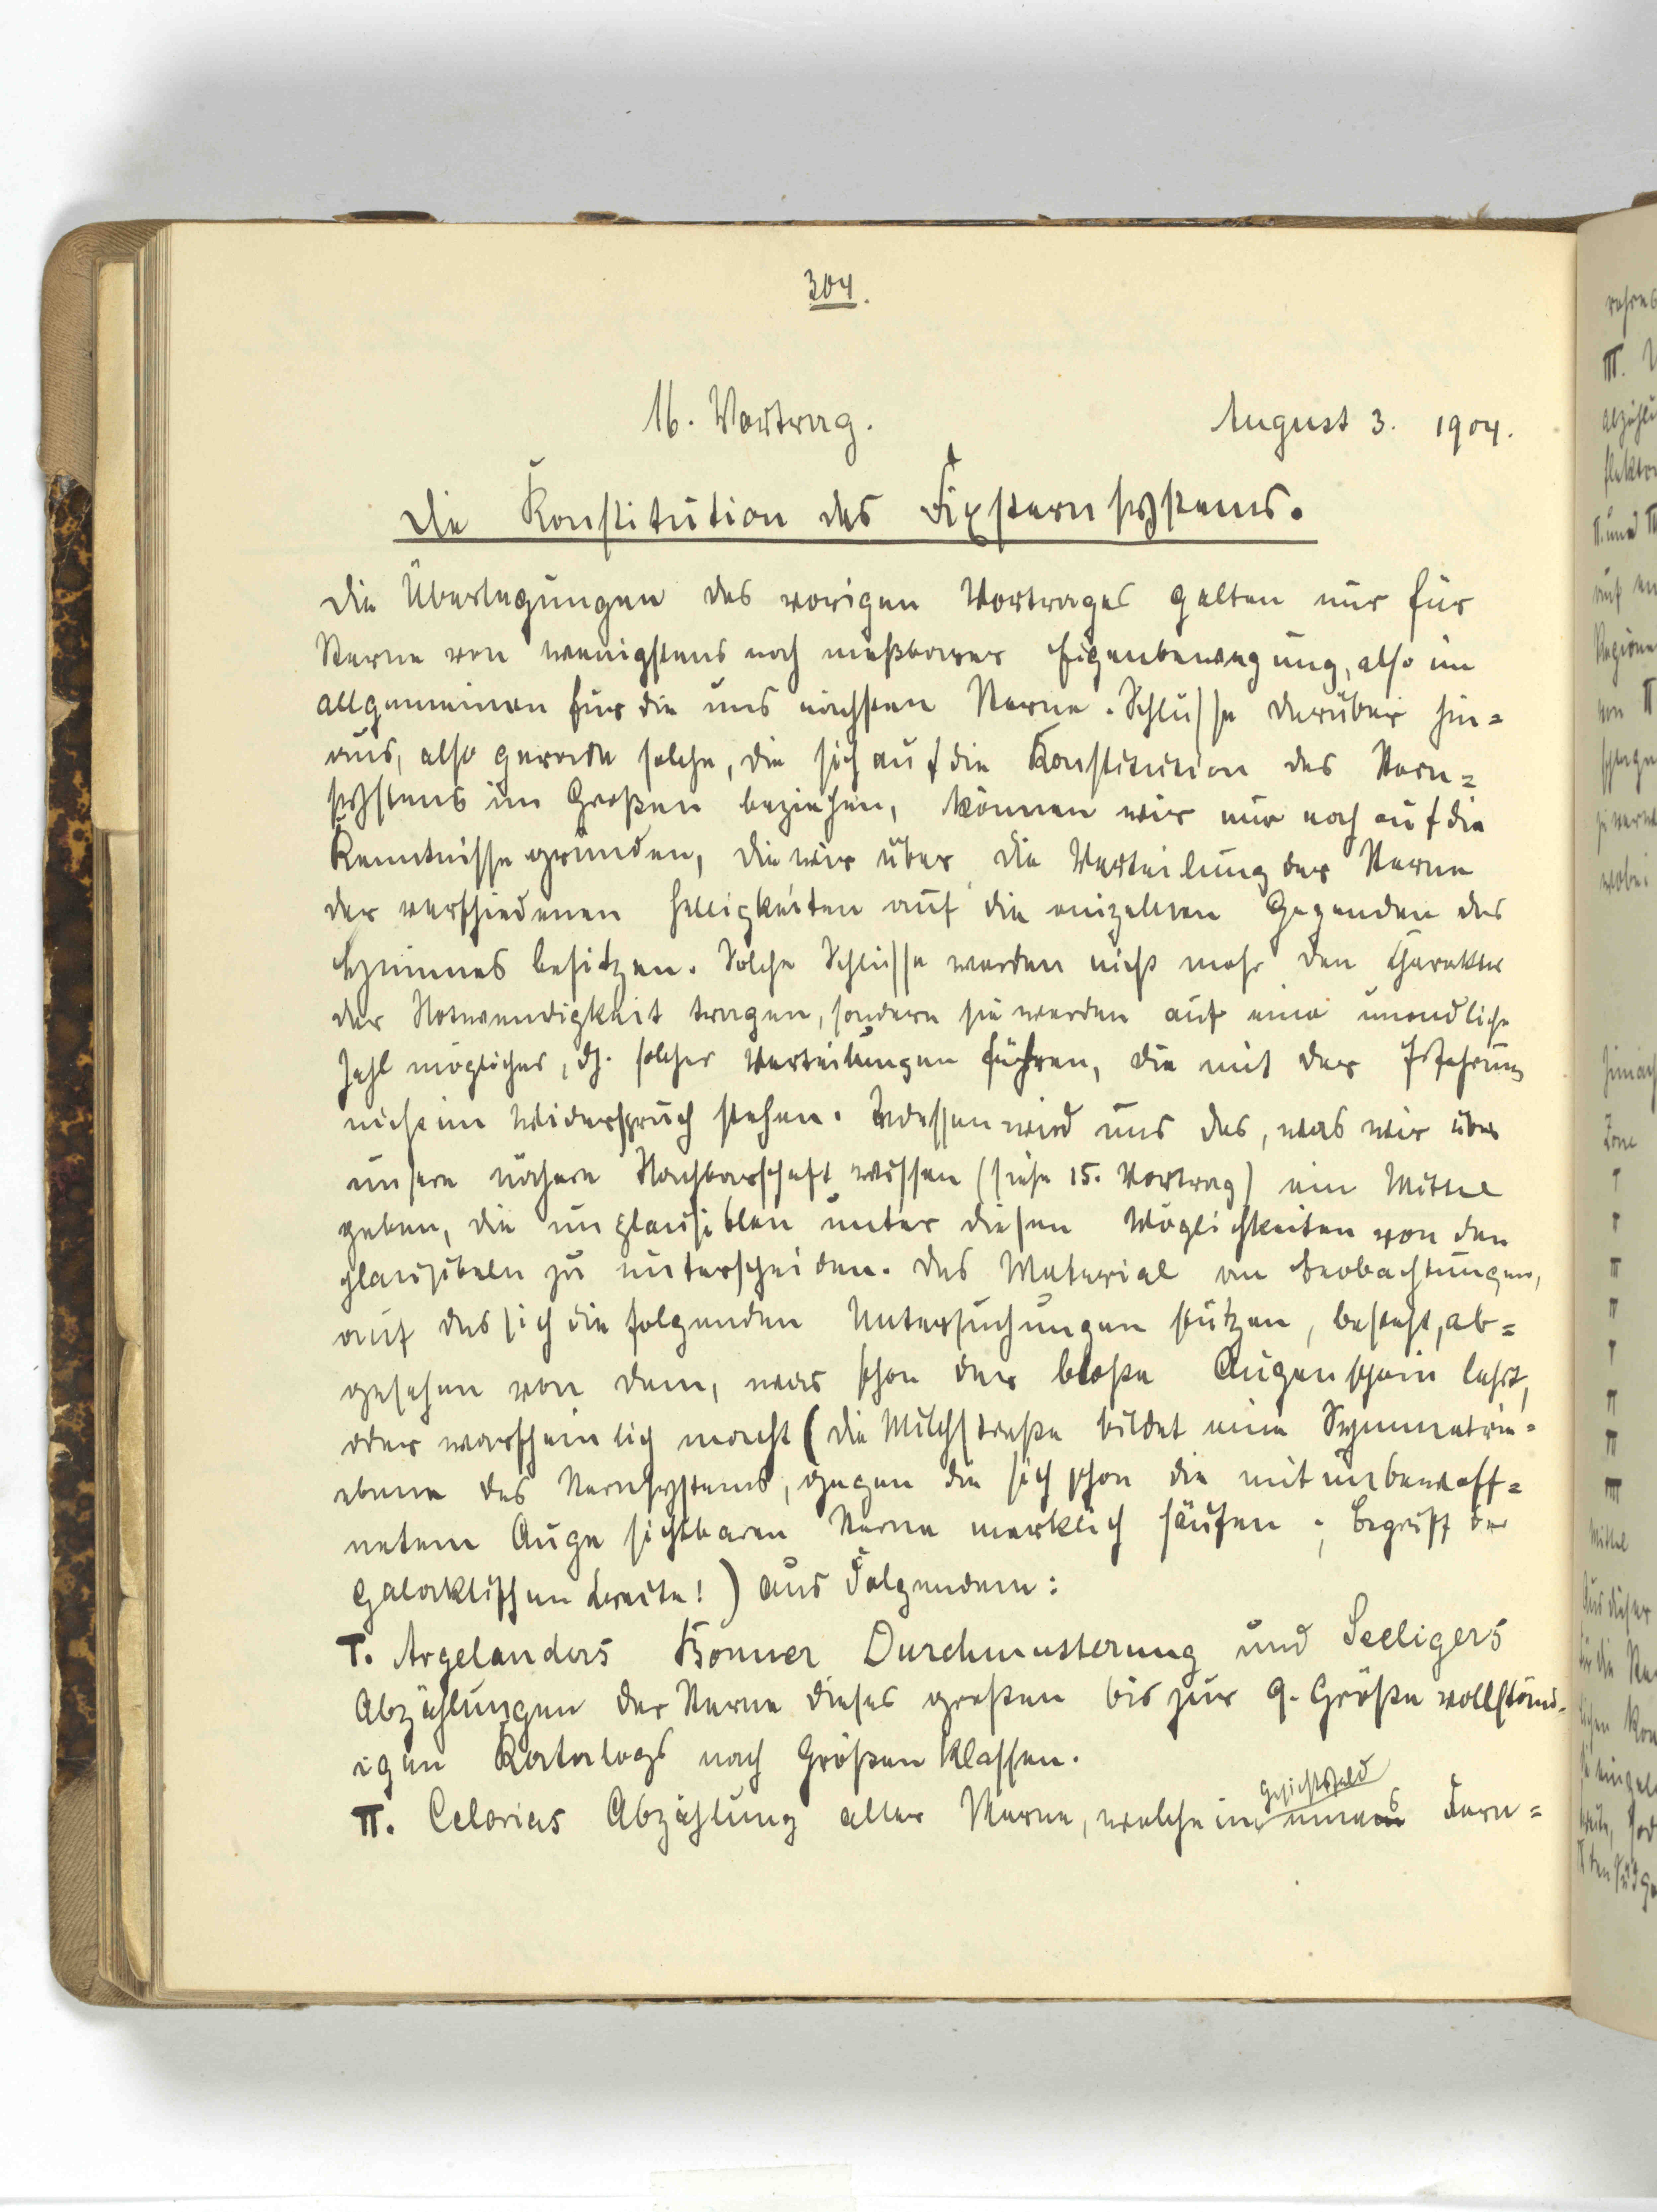 304.
16. Vortrag. August 3. 1904.
Die Konstitution des Fixsternsystems.
Die Überlegungen des vorigen Vortrages gelten nur für
Sterne von wenigstens noch meßbarer Eigenbewegung, also im
allgemeinen für die uns nächsten Sterne. Schlüsse darüber hin=
aus, also gerade solche, die sich auf die Konstitution des Stern=
systems im Großen beziehen, können wir nur noch auf die
Kenntnisse gründen, die wir über die Verteilung der Sterne
der verschiedenen Helligkeiten auf die einzelnen Gegenden des
Himmels besitzen. Solche Schlüsse werden nicht mehr den Charakter
der Notwendigkeit tragen, sondern sie werden auf eine unendliche
Zahl möglicher, dh. solcher Verteilungen führen, die mit der Erfahrung
nicht im Widerspruch stehen. Indessen wird uns das, was wir über
unsere nähere Nachbarschaft wissen (siehe 15. Vortrag) ein Mittel
geben, die unplausiblen unter diesen Möglichkeiten von den
plausibeln zu unterscheiden. Das Material an Beobachtungen,
auf das sich die folgenden Untersuchungen stützen, besteht, ab=
gesehen von dem, was schon der bloße Augenschein lehrt,
oder warscheinlich macht (die Milchstraße bildet eine Symmetrie=
ebene des Sternsystems, gegen die sich schon die mit unbewaff=
netem Auge sichtbaren Sterne merklich häufen; Begriff der
galaktischen Breite!) aus Folgendem:
I. Argelanders Bonner Durchmusterung und Seeligers
Abzählungen der Sterne dieses großen bis zur 9. Größe vollständ=
igen Katalogs nach Größenklassen.
Gesichtsfeld
II. Celorias Abzählung aller Sterne, welche im eines Fern=